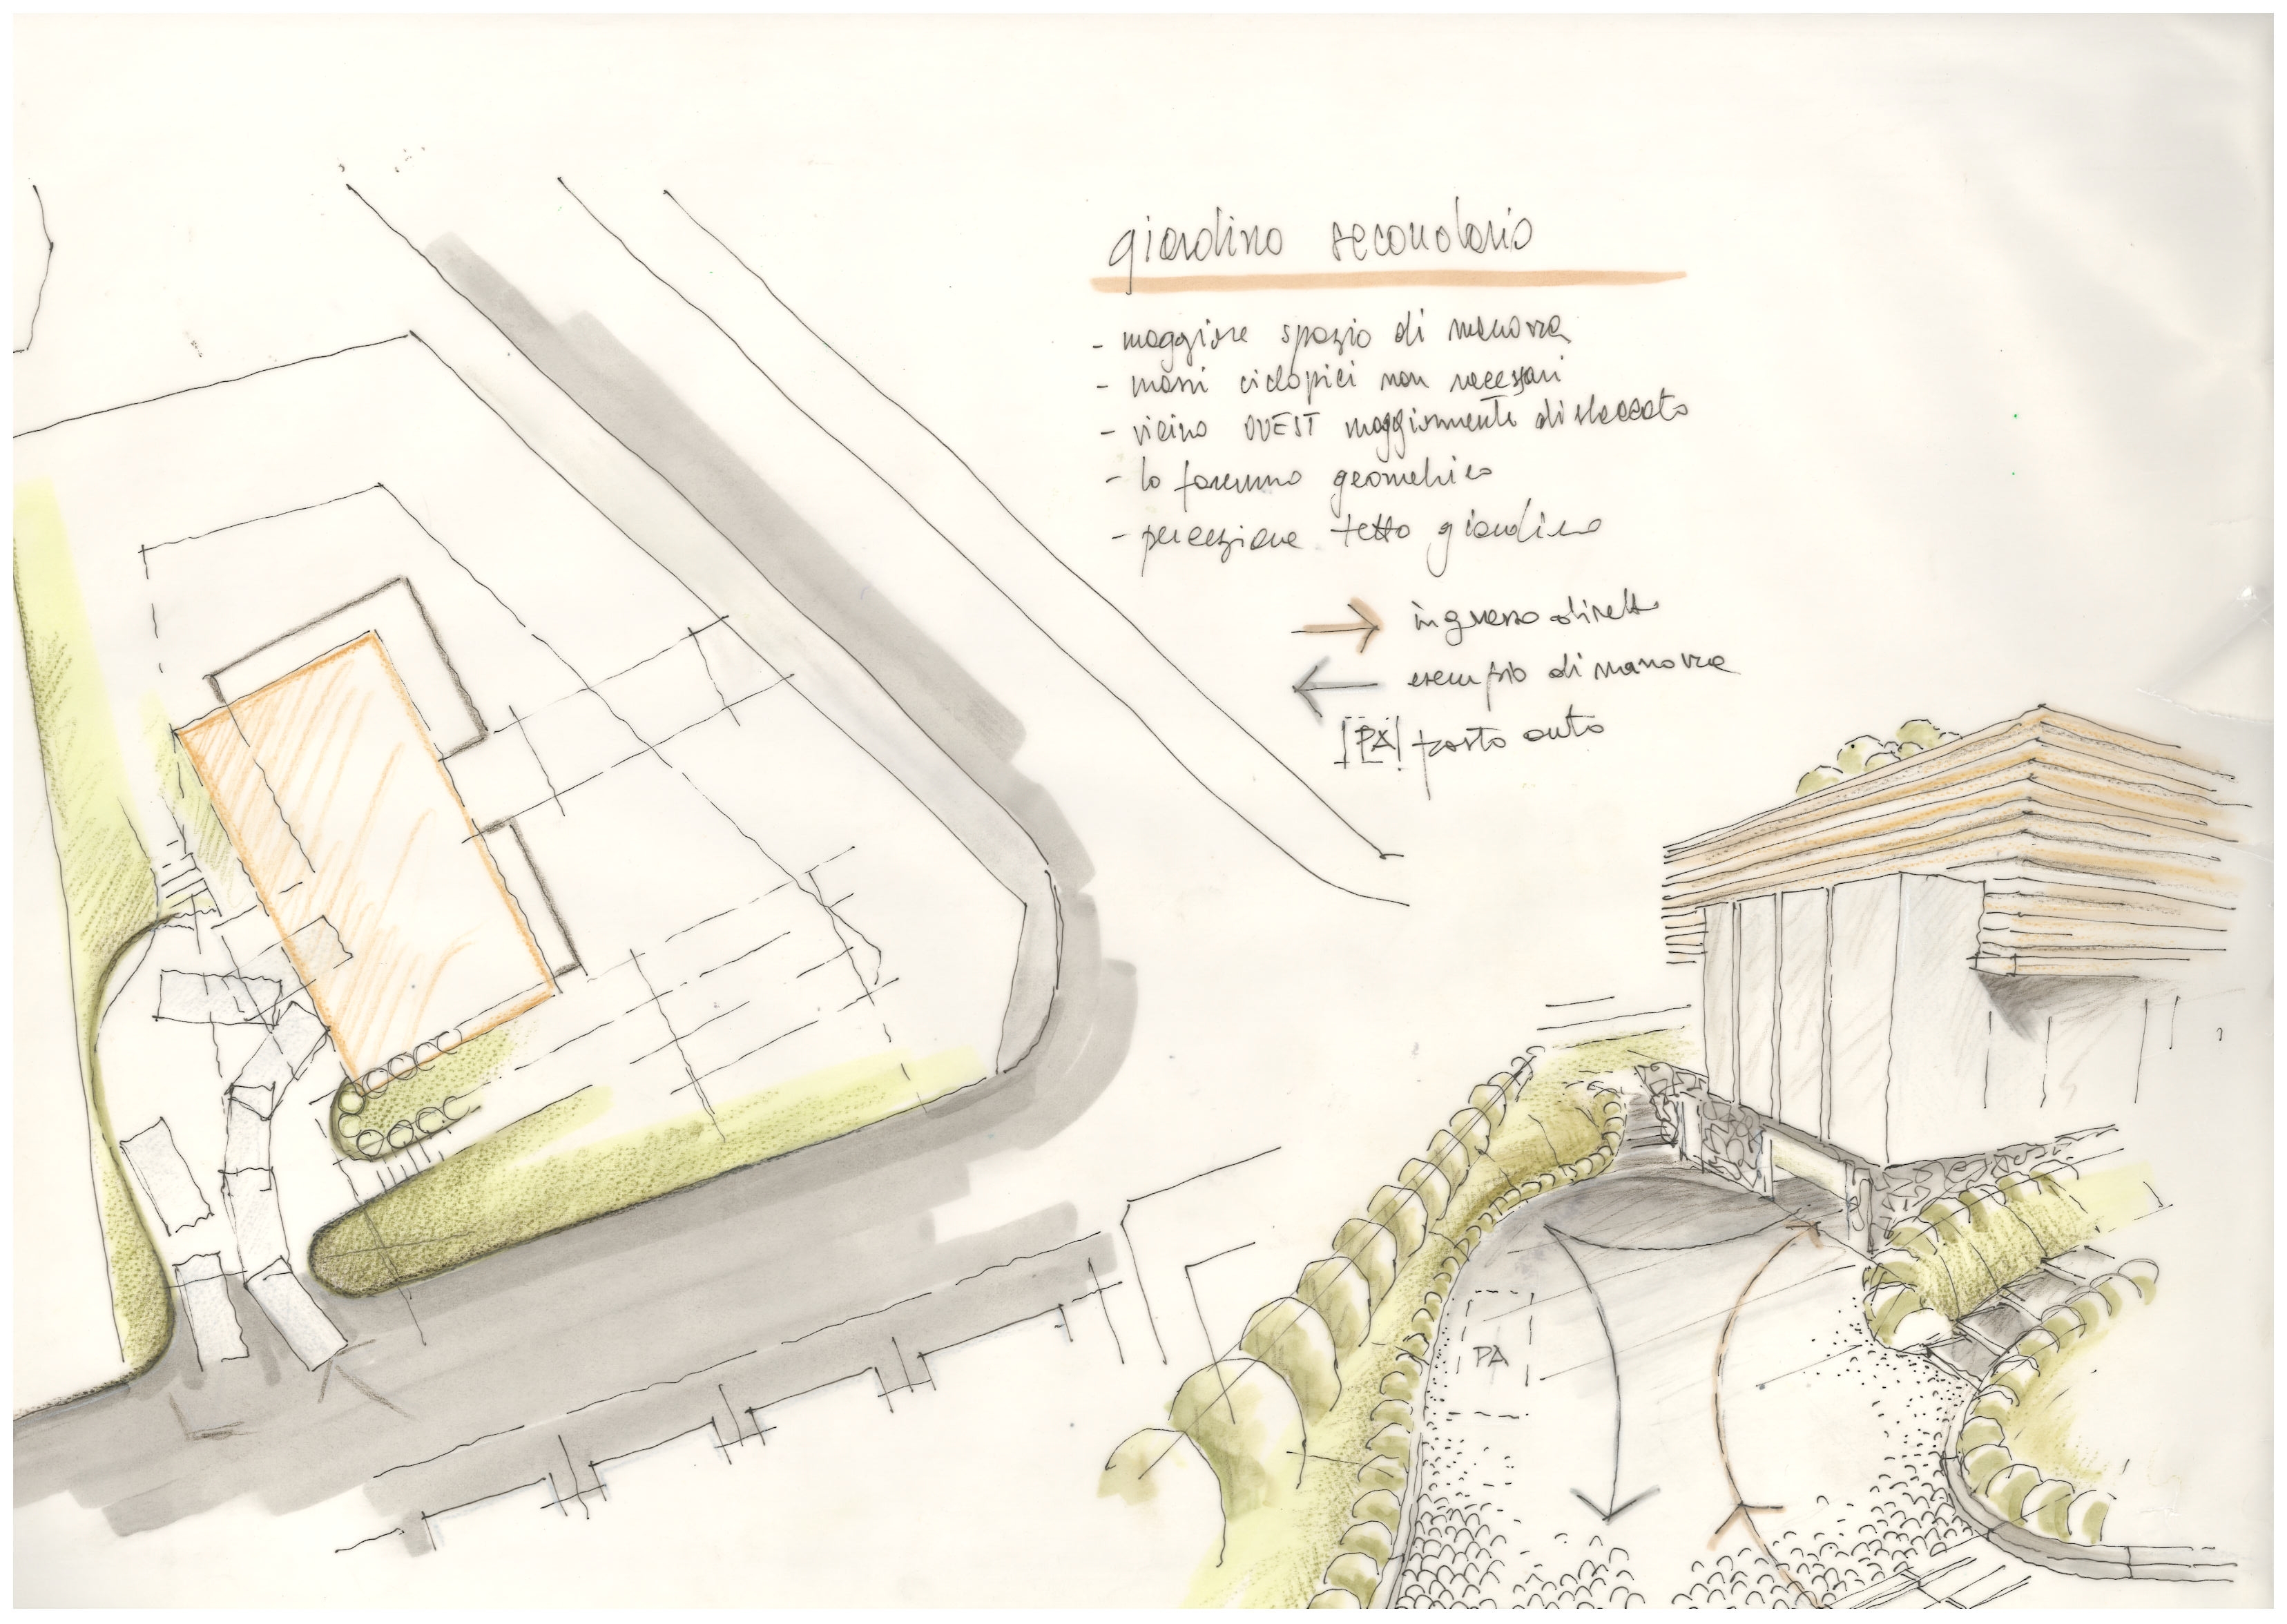 giardino secondario
- maggiore spazio di manovra
- massi ciclopici non necessari
- vicino OVEST maggiormente distaccato
- lo faremmo geometrico
- percezione tetto giardino
ingresso diretto
esempio di manovra
PA posto auto
PA